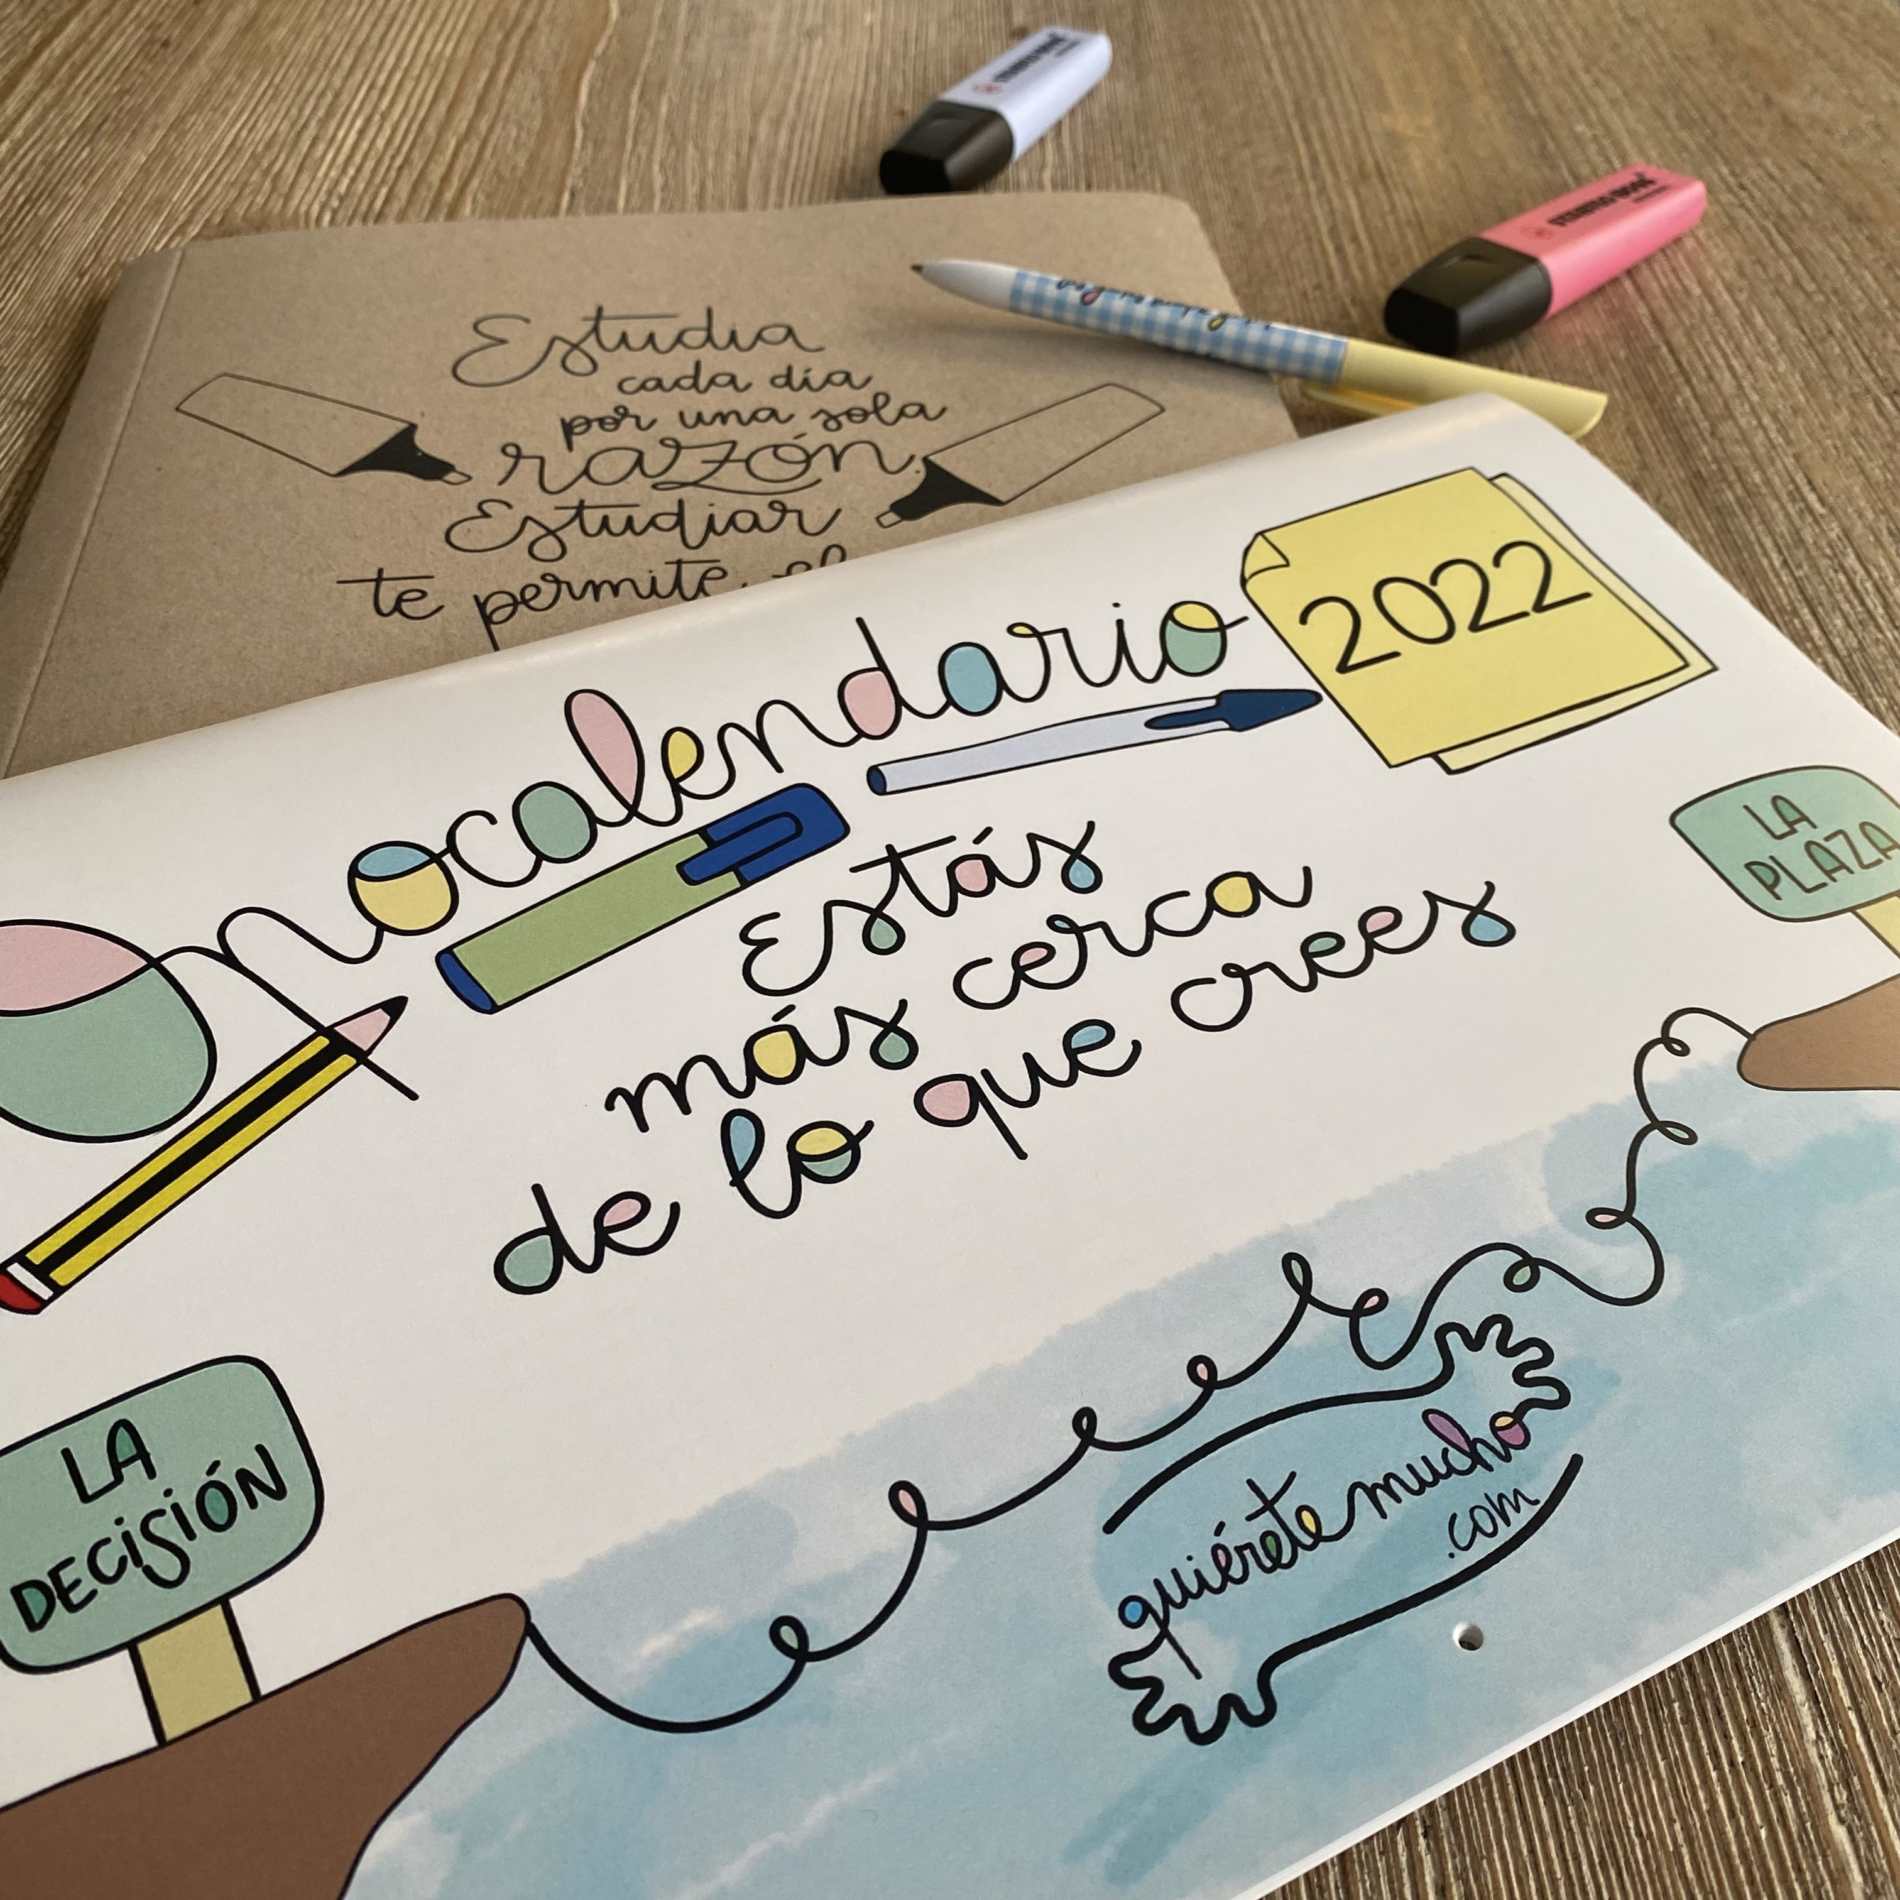 Estudia
cada día
por una sola
razón
Estudiar
te permite
Opocalendario
2022
Estás
más cerca
de lo que crees
LA
PLAZA
LA
DECISIÓN
quiérete mucho
.com